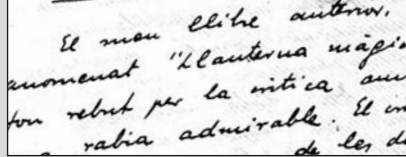 El meu llibre anterior,
anomenat "Llanterna màgic
fou rebut per la crítica am
rabia admirable. El
de les